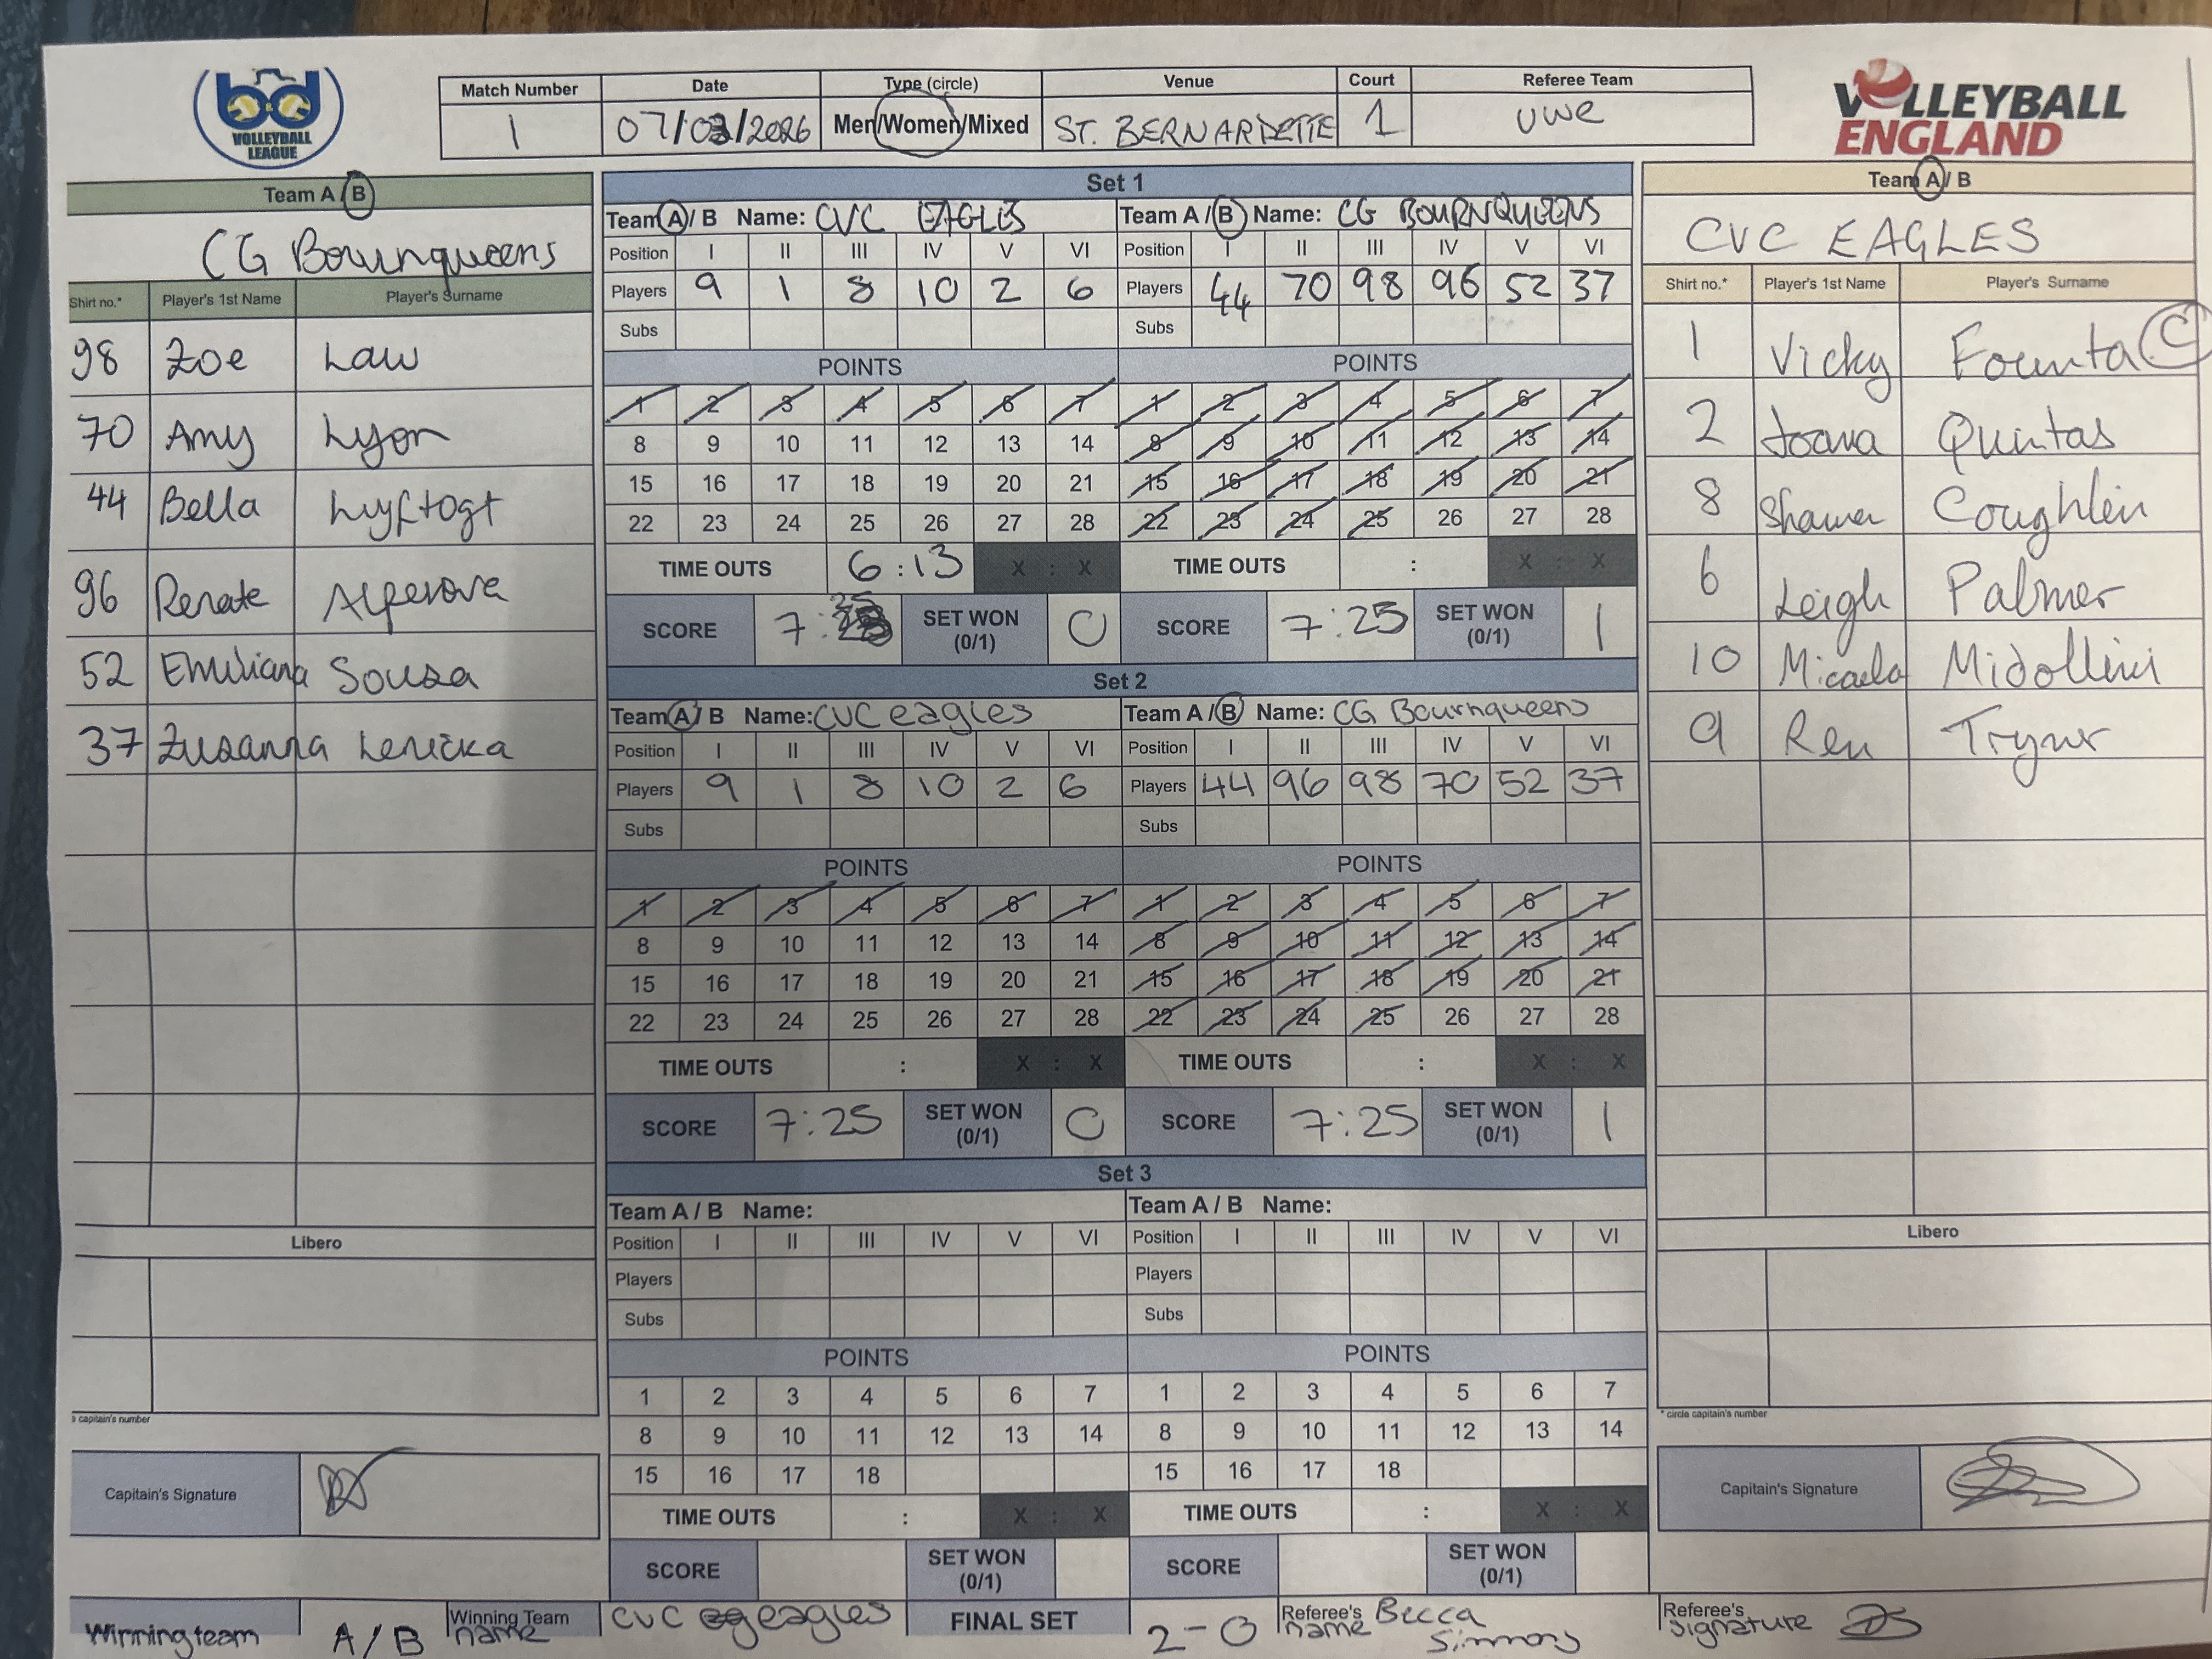 bd VOLLEYBALL LEAGUE
Match Number Date Type (circle) Venue Court Referee Team
1 07/03/2026 Men/Women/Mixed ST. BERNARDETTE 1 UWE
VOLLEYBALL ENGLAND
Team A / B
CG Bournqueens
Shirt no.* Player's 1st Name Player's Surname
98 Zoe Law
70 Amy Lyon
44 Bella Luyftogt
96 Renate Alperova
52 Emiliana Sousa
37 Zuzanna Lenicka
Libero
s capitain's number
Capitain's Signature
Set 1
Team A / B Name: CVC EAGLES Team A / B Name: CG BOURNQUEENS
Position I II III IV V VI Position I II III IV V VI
Players 9 1 8 10 2 6 Players 44 70 98 96 52 37
Subs Subs
POINTS POINTS
1 2 3 4 5 6 7 1 2 3 4 5 6 7
8 9 10 11 12 13 14 8 9 10 11 12 13 14
15 16 17 18 19 20 21 15 16 17 18 19 20 21
22 23 24 25 26 27 28 22 23 24 25 26 27 28
TIME OUTS 6:13 X : X TIME OUTS : X : X
SCORE 7:25 SET WON (0/1) 0 SCORE 7:25 SET WON (0/1) 1
Set 2
Team A / B Name: CVC eagles Team A / B Name: CG Bournqueens
Position I II III IV V VI Position I II III IV V VI
Players 9 1 8 10 2 6 Players 44 96 98 70 52 37
Subs Subs
POINTS POINTS
1 2 3 4 5 6 7 1 2 3 4 5 6 7
8 9 10 11 12 13 14 8 9 10 11 12 13 14
15 16 17 18 19 20 21 15 16 17 18 19 20 21
22 23 24 25 26 27 28 22 23 24 25 26 27 28
TIME OUTS : X : X TIME OUTS : X : X
SCORE 7:25 SET WON (0/1) 0 SCORE 7:25 SET WON (0/1) 1
Set 3
Team A / B Name: Team A / B Name:
Position I II III IV V VI Position I II III IV V VI
Players Players
Subs Subs
POINTS POINTS
1 2 3 4 5 6 7 1 2 3 4 5 6 7
8 9 10 11 12 13 14 8 9 10 11 12 13 14
15 16 17 18 15 16 17 18
TIME OUTS : X : X TIME OUTS : X : X
SCORE SET WON (0/1) SCORE SET WON (0/1)
Team A / B
CVC EAGLES
Shirt no.* Player's 1st Name Player's Surname
1 Vicky Founta C
2 Joana Quintas
8 Coughlin
6 Leigh Palmer
10 Micaela Midollini
9 Ren Tryner
Libero
* circle capitain's number
Capitain's Signature
Winning team A/B Winning Team name CVC eagles FINAL SET 2-0 Referee's name Becca Simmons Referee's signature